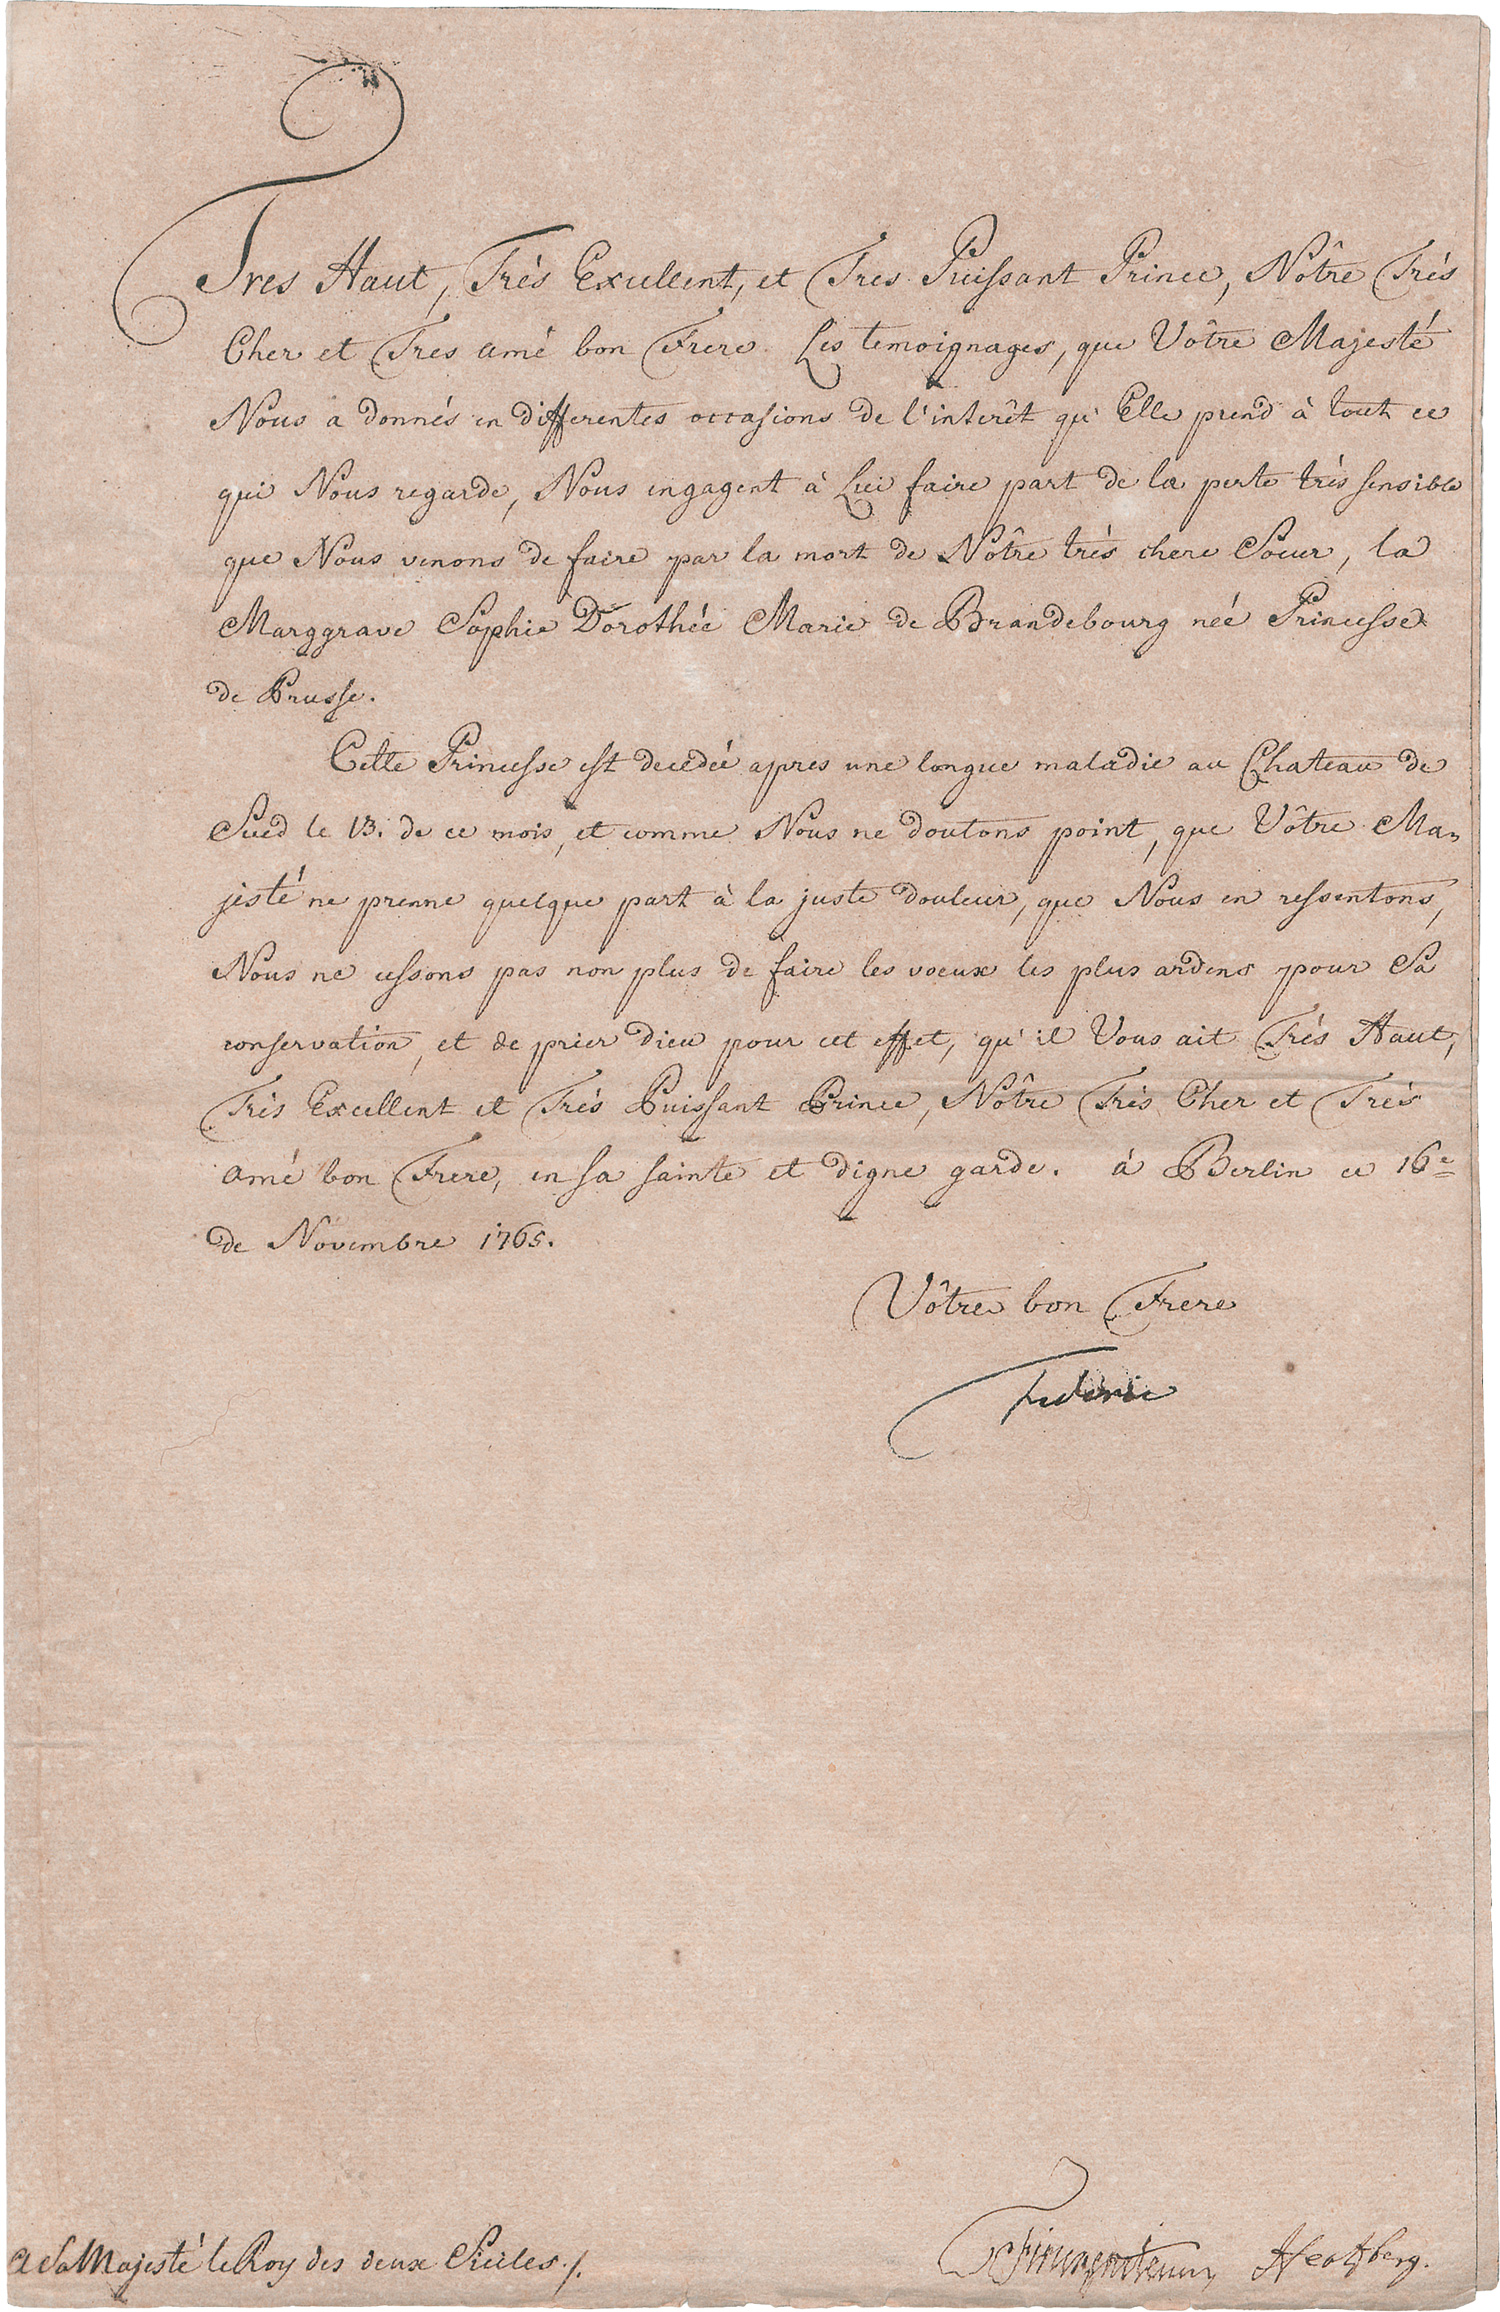 Tres Haut, Trés Excellent, et Tres Puissant Prince, Nôtre Trés
Cher et Tres amé bon Frere. Les temoignages, que Vôtre Majesté
Nous a donnés en differentes occasions de l'interêt qu'Elle prend à tout ce
qui Nous regarde, Nous engagent à Lui faire part de la perte très sensible
que Nous venons de faire par la mort de Nôtre très chere Soeur, la
Marggrave Sophie Dorothée Marie de Brandebourg neé Princesse
de Prusse.
Cette Princesse est decedeé apres une longue maladie au Chateau de
Sued le 13. de ce mois, et comme Nous ne doutons point, que Vôtre Ma=
jesté ne prenne quelque part à la juste douleur, que Nous en ressentons,
Nous ne cessons pas non plus de faire les voeux les plus ardens pour Sa
conservation, et de prier Dieu pour cet effet, qu'il Vous ait Trés Haut,
Trés Excellent et Trés Puissant Prince, Nôtre Trés Cher et Trés
amé bon Frere, en sa sainte et digne garde. à Berlin ce 16e
de Novembre 1765.
Vôtre bon Frere
Federic
A Sa Majesté le Roy des deux Siciles./.
Finckenstein Hertzberg.